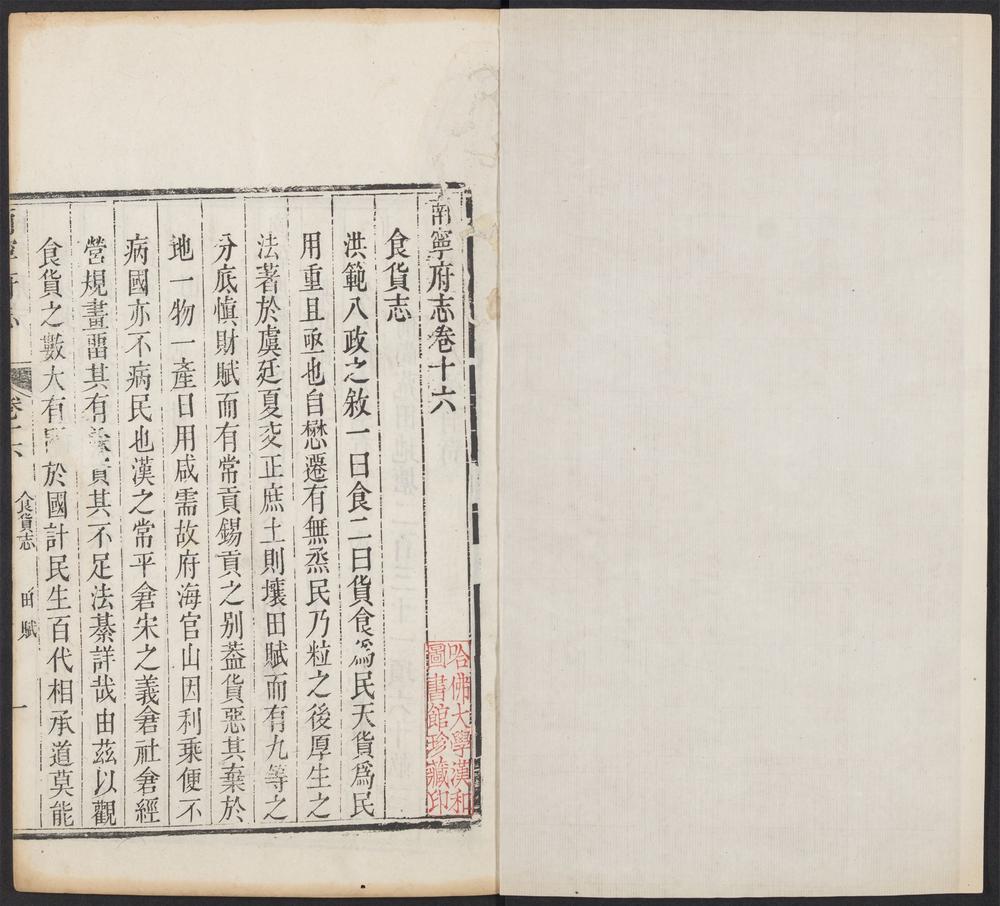 南寧府志卷十六
食貨志
洪範八政之敘一曰食二曰貨食爲民天貨爲民
用重且亟也自懋遷有無烝民乃粒之後厚生之
法著於虞廷夏交正庶土則壤田賦而有九等之
分底愼財賦而有常貢錫貢之别葢貨惡其棄於
地一物一產日用咸需故府海官山因利乘便不
病國亦不病民也漢之常平倉宋之義倉社倉經
營規畫畱其有 其不足法綦詳哉由茲以觀
食貨之數大有 於國計民生百代相承道莫能
寧府志 卷十六 食貨志 田賦 一
哈佛大學漢和
圖書館珍藏印